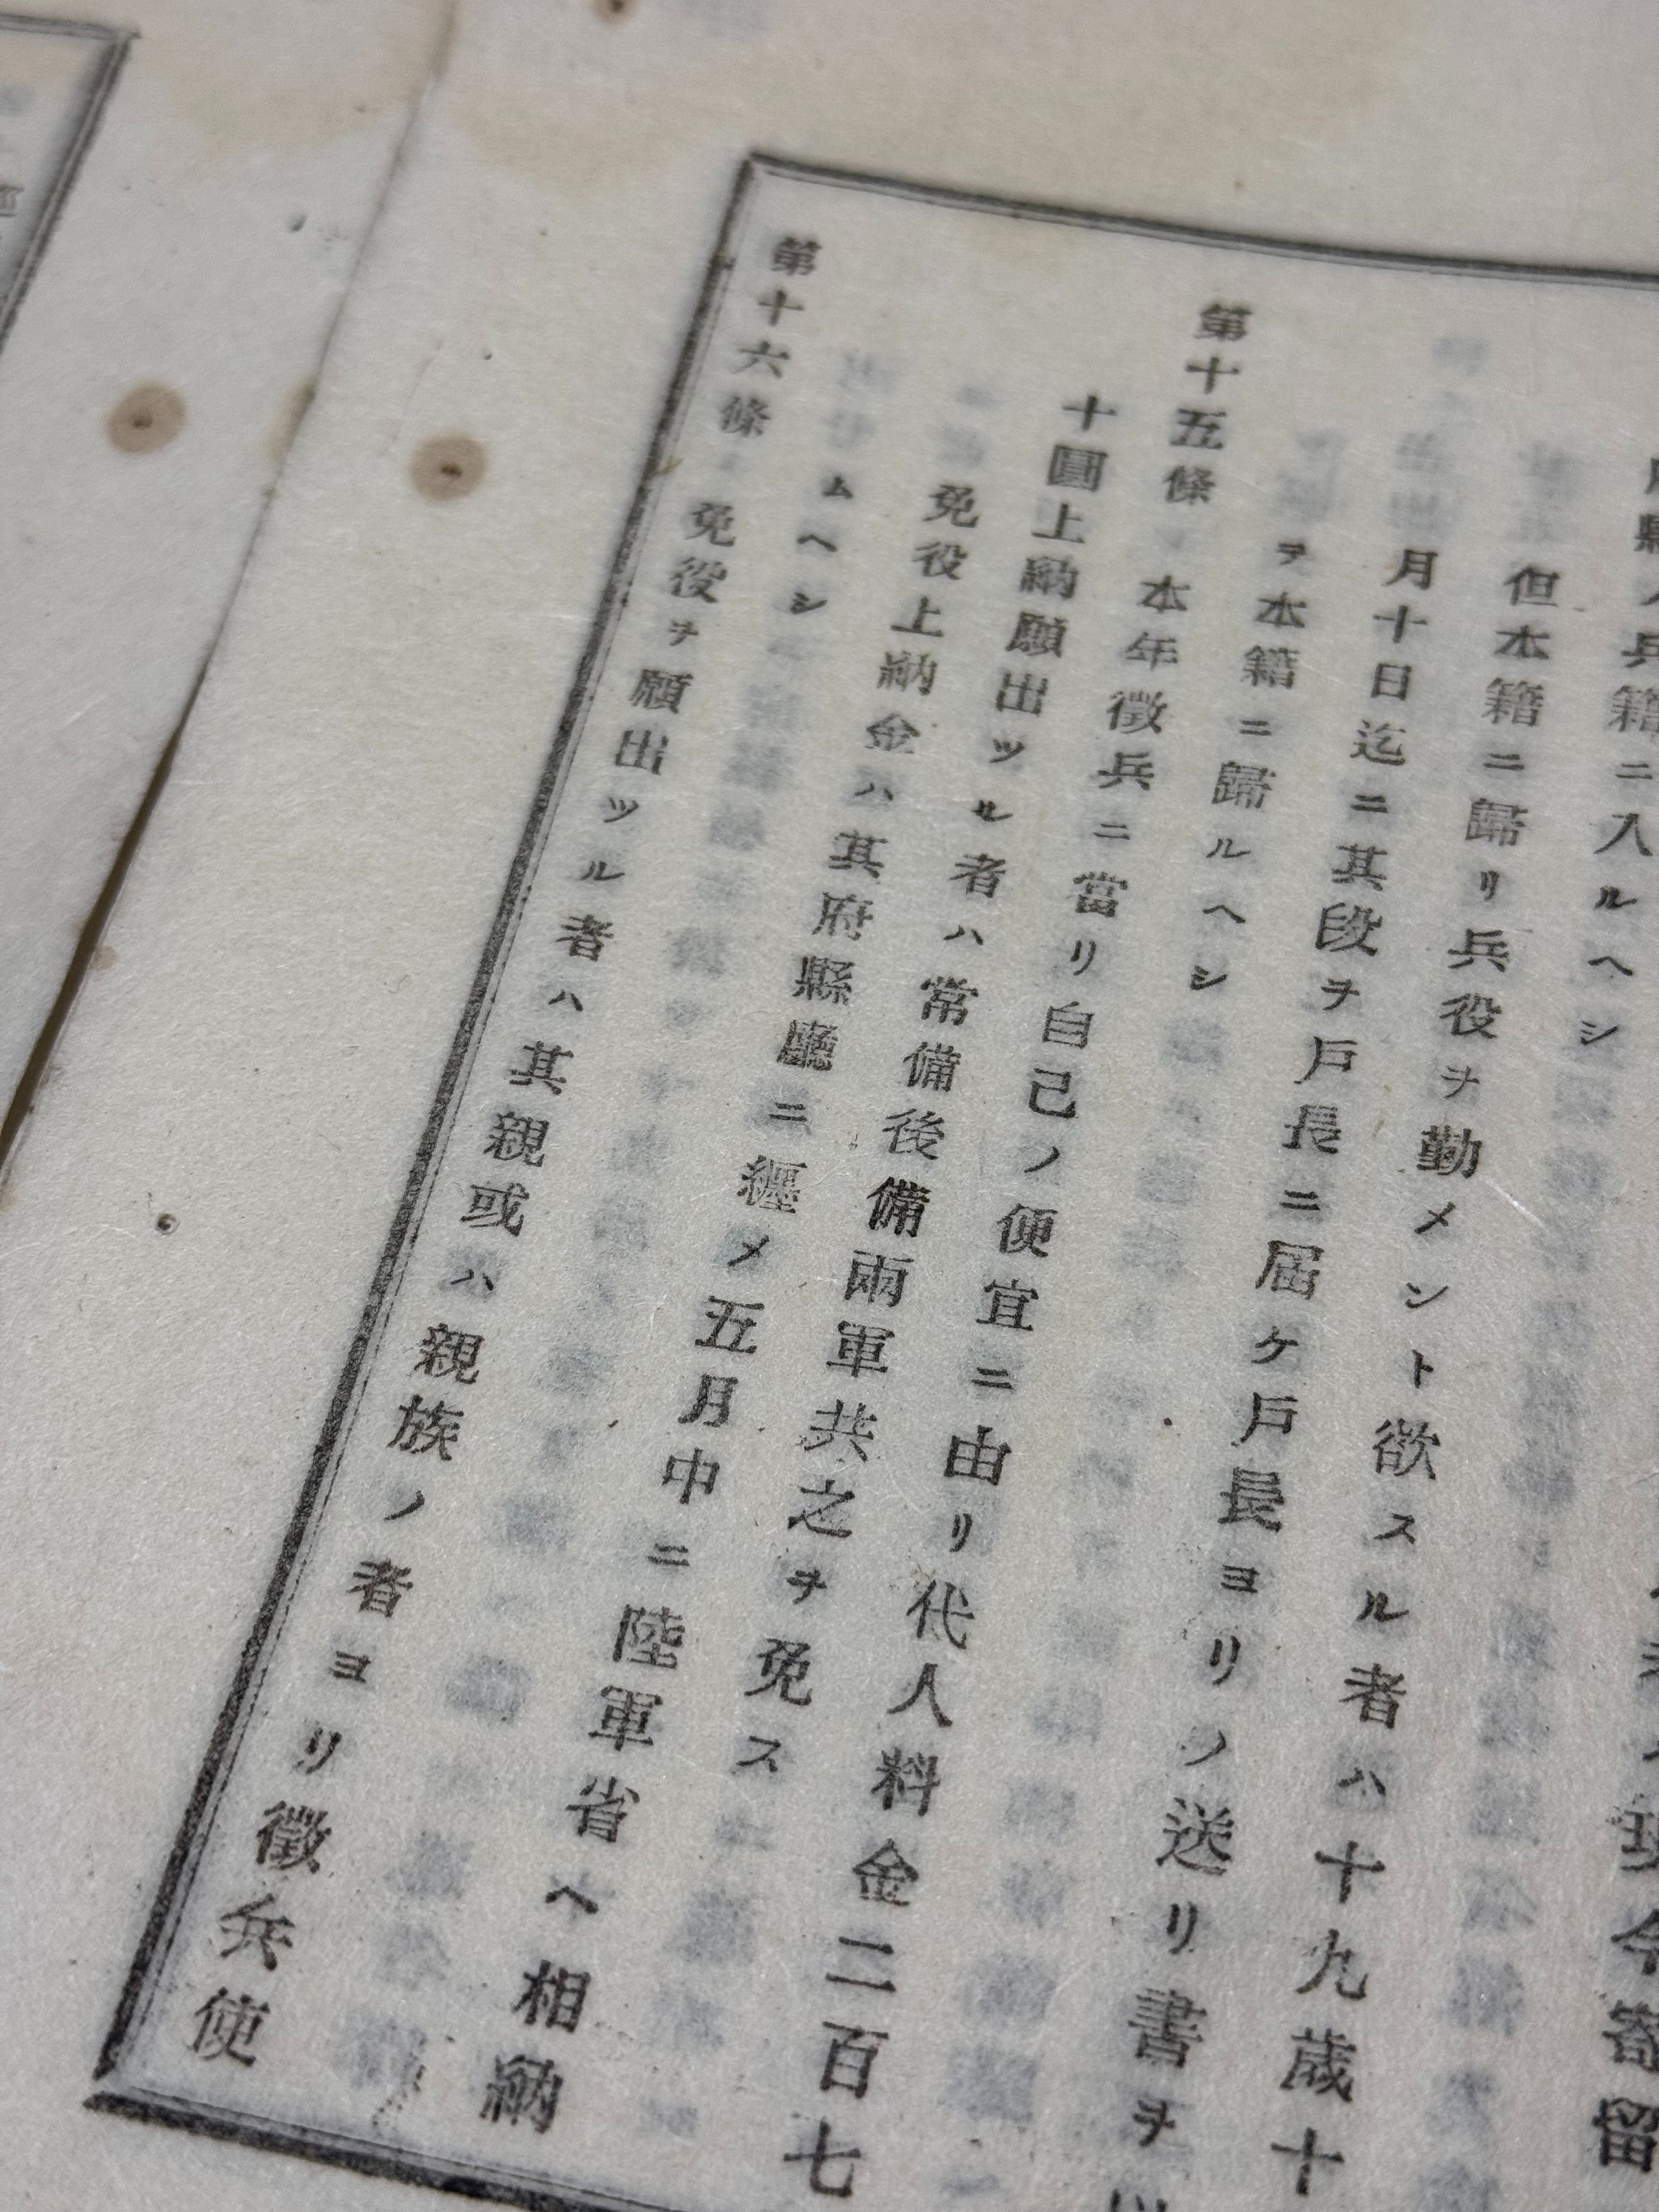 現今寄留
縣ノ兵籍ニ入ルヘシ
但本籍ニ歸リ兵役ヲ勤メント欲スル者ハ十九歳十
月十日迄ニ其段ヲ戸長ニ届ケ戸長ヨリノ送リ書ヲ以
テ本籍ニ歸ルヘシ
第十五條 本年徴兵ニ當リ自己ノ便宜ニ由リ代人料金二百七
十圓上納願出ツル者ハ常備後備兩軍共之ヲ免ス
免役上納金ハ其府縣廳ニ纒メ五月中ニ陸軍省ヘ相納
ムヘシ
第十六條 免役ヲ願出ツル者ハ其親或ハ親族ノ者ヨリ徴兵使